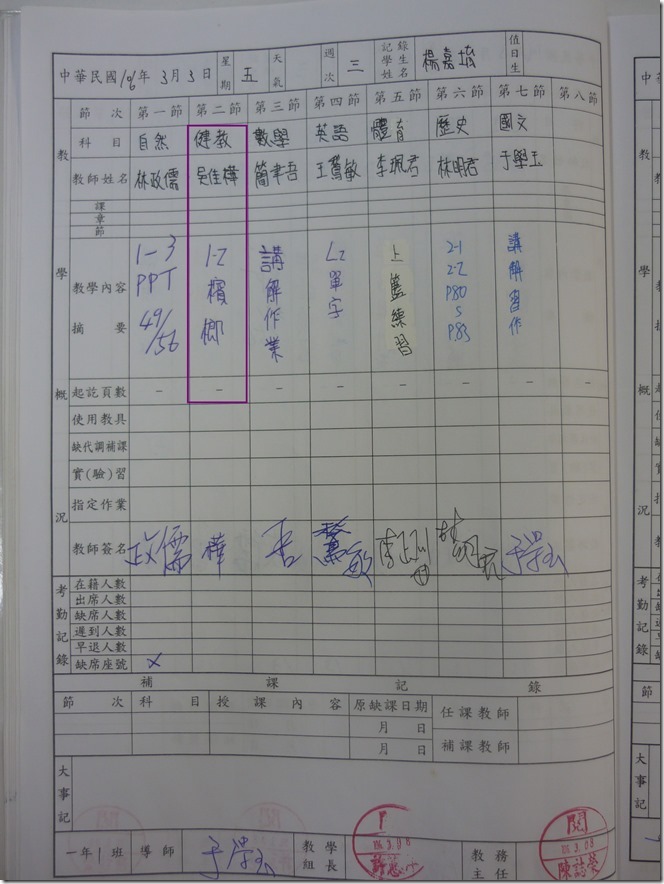 中華民國 106年 3月 3日 星期 五 天氣 週次 三 記錄學生姓名 楊嘉 值日生
節次 第一節 第二節 第三節 第四節 第五節 第六節 第七節 第八節
科目 自然 健教 數學 英語 體育 歷史 國文
教師姓名 林政儒 吳佳樺 簡聿吾 王鶯敏 李珮君 林明君 于學玉
課
章
節
教學概況
教學內容摘要
1-3 PPT 49/56
1-2 檳榔
講解作業
L2 單字
上籃練習
2-1 2-2 P80 S P83
講解習作
起訖頁數 - - - - - - - -
使用教具
缺代調補課
實(驗)習
指定作業
教師簽名 政儒 樺 吾 鶯敏 于學玉
考勤記錄
在籍人數
出席人數
缺席人數
遲到人數
早退人數
缺席座號 ×
補課記錄
節次 科目 授課內容 原缺課日期 任課教師
月 日
月 日 補課教師
大事記
一年1班 導師 于學玉 教學組長 教務主任
閱
106.3.08